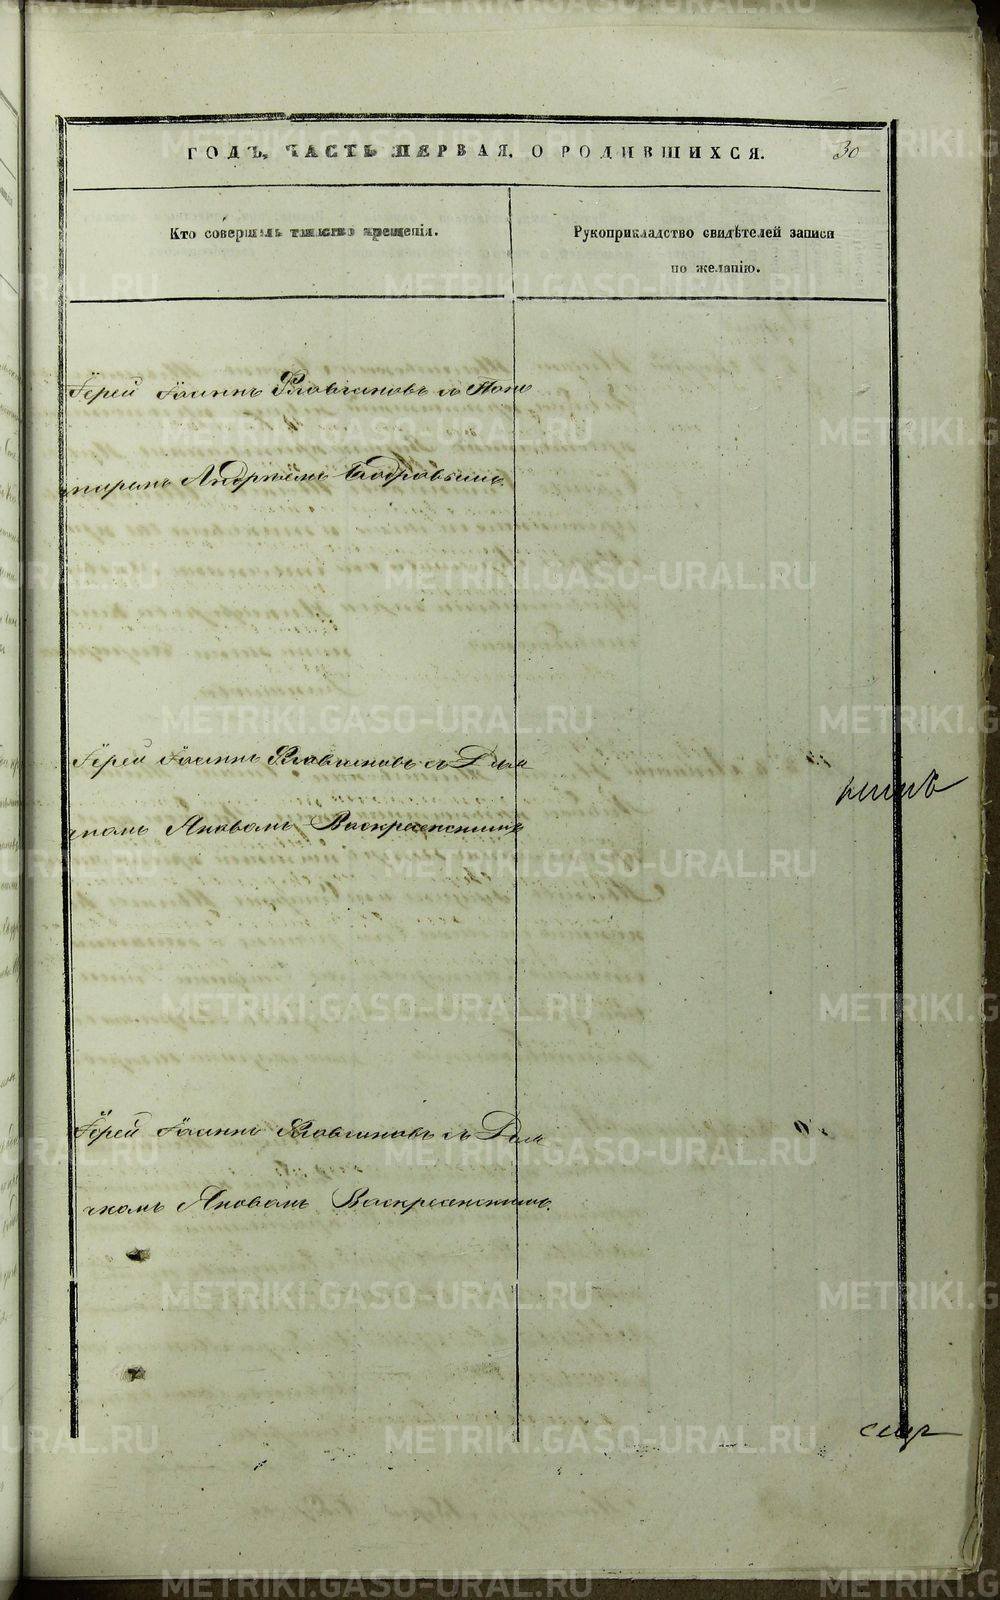 ГОДЪ, ЧАСТЬ ПЕРВАЯ, О РОДИВШИХСЯ. 30
Кто совершалъ таинство крещенія.
Рукоприкладство свидѣтелей записи
по желанію.
Іерей Іоаннъ Словцовъ съ Поно
маремъ Андреемъ Бодровымъ.
Іерей Іоаннъ съ Дьяч
комъ Яковомъ Воскресенскимъ
Іерей Іоаннъ съ Дьяч
комъ Яковомъ Воскресенскимъ.
METRIKI.GASO-URAL.RU